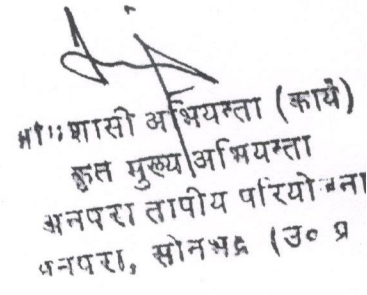 शासी अभियन्ता (कार्य)
कृत मुख्य अभियन्ता
अनपरा तापीय परियोजना
अनपरा, सोनभद्र (उ० प्र